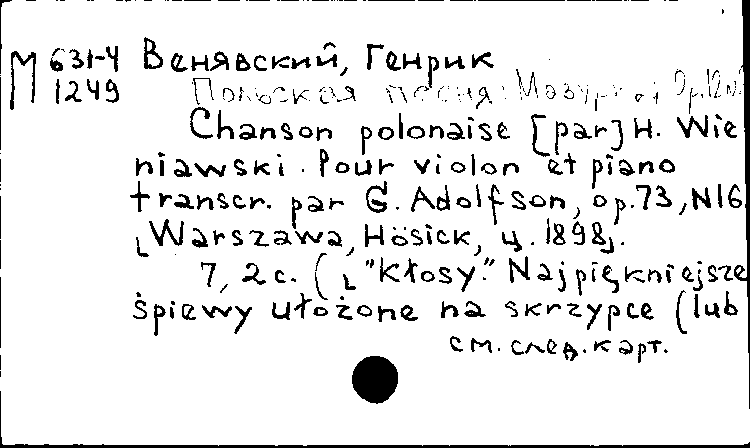 М 631-4 Венявский, Генрик
1249 Польская песня: Мазурка Op.12
Chanson polonaise [par] H. Wie
niawski. Pour violon et piano
transcr. par G. Adolfson, op.73, N16
[Warszawa, Hösick, ц. 1898].
7, 2 с. ( ["Kłosy." Najpiękniejsze
śpiewy ułożone na skrzypce (lub
см. след. карт.